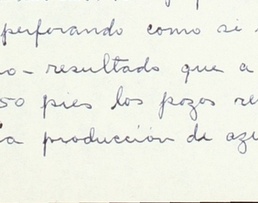 perforando como si
o- resultado que a
50 pies los pozos re
a producción de azu